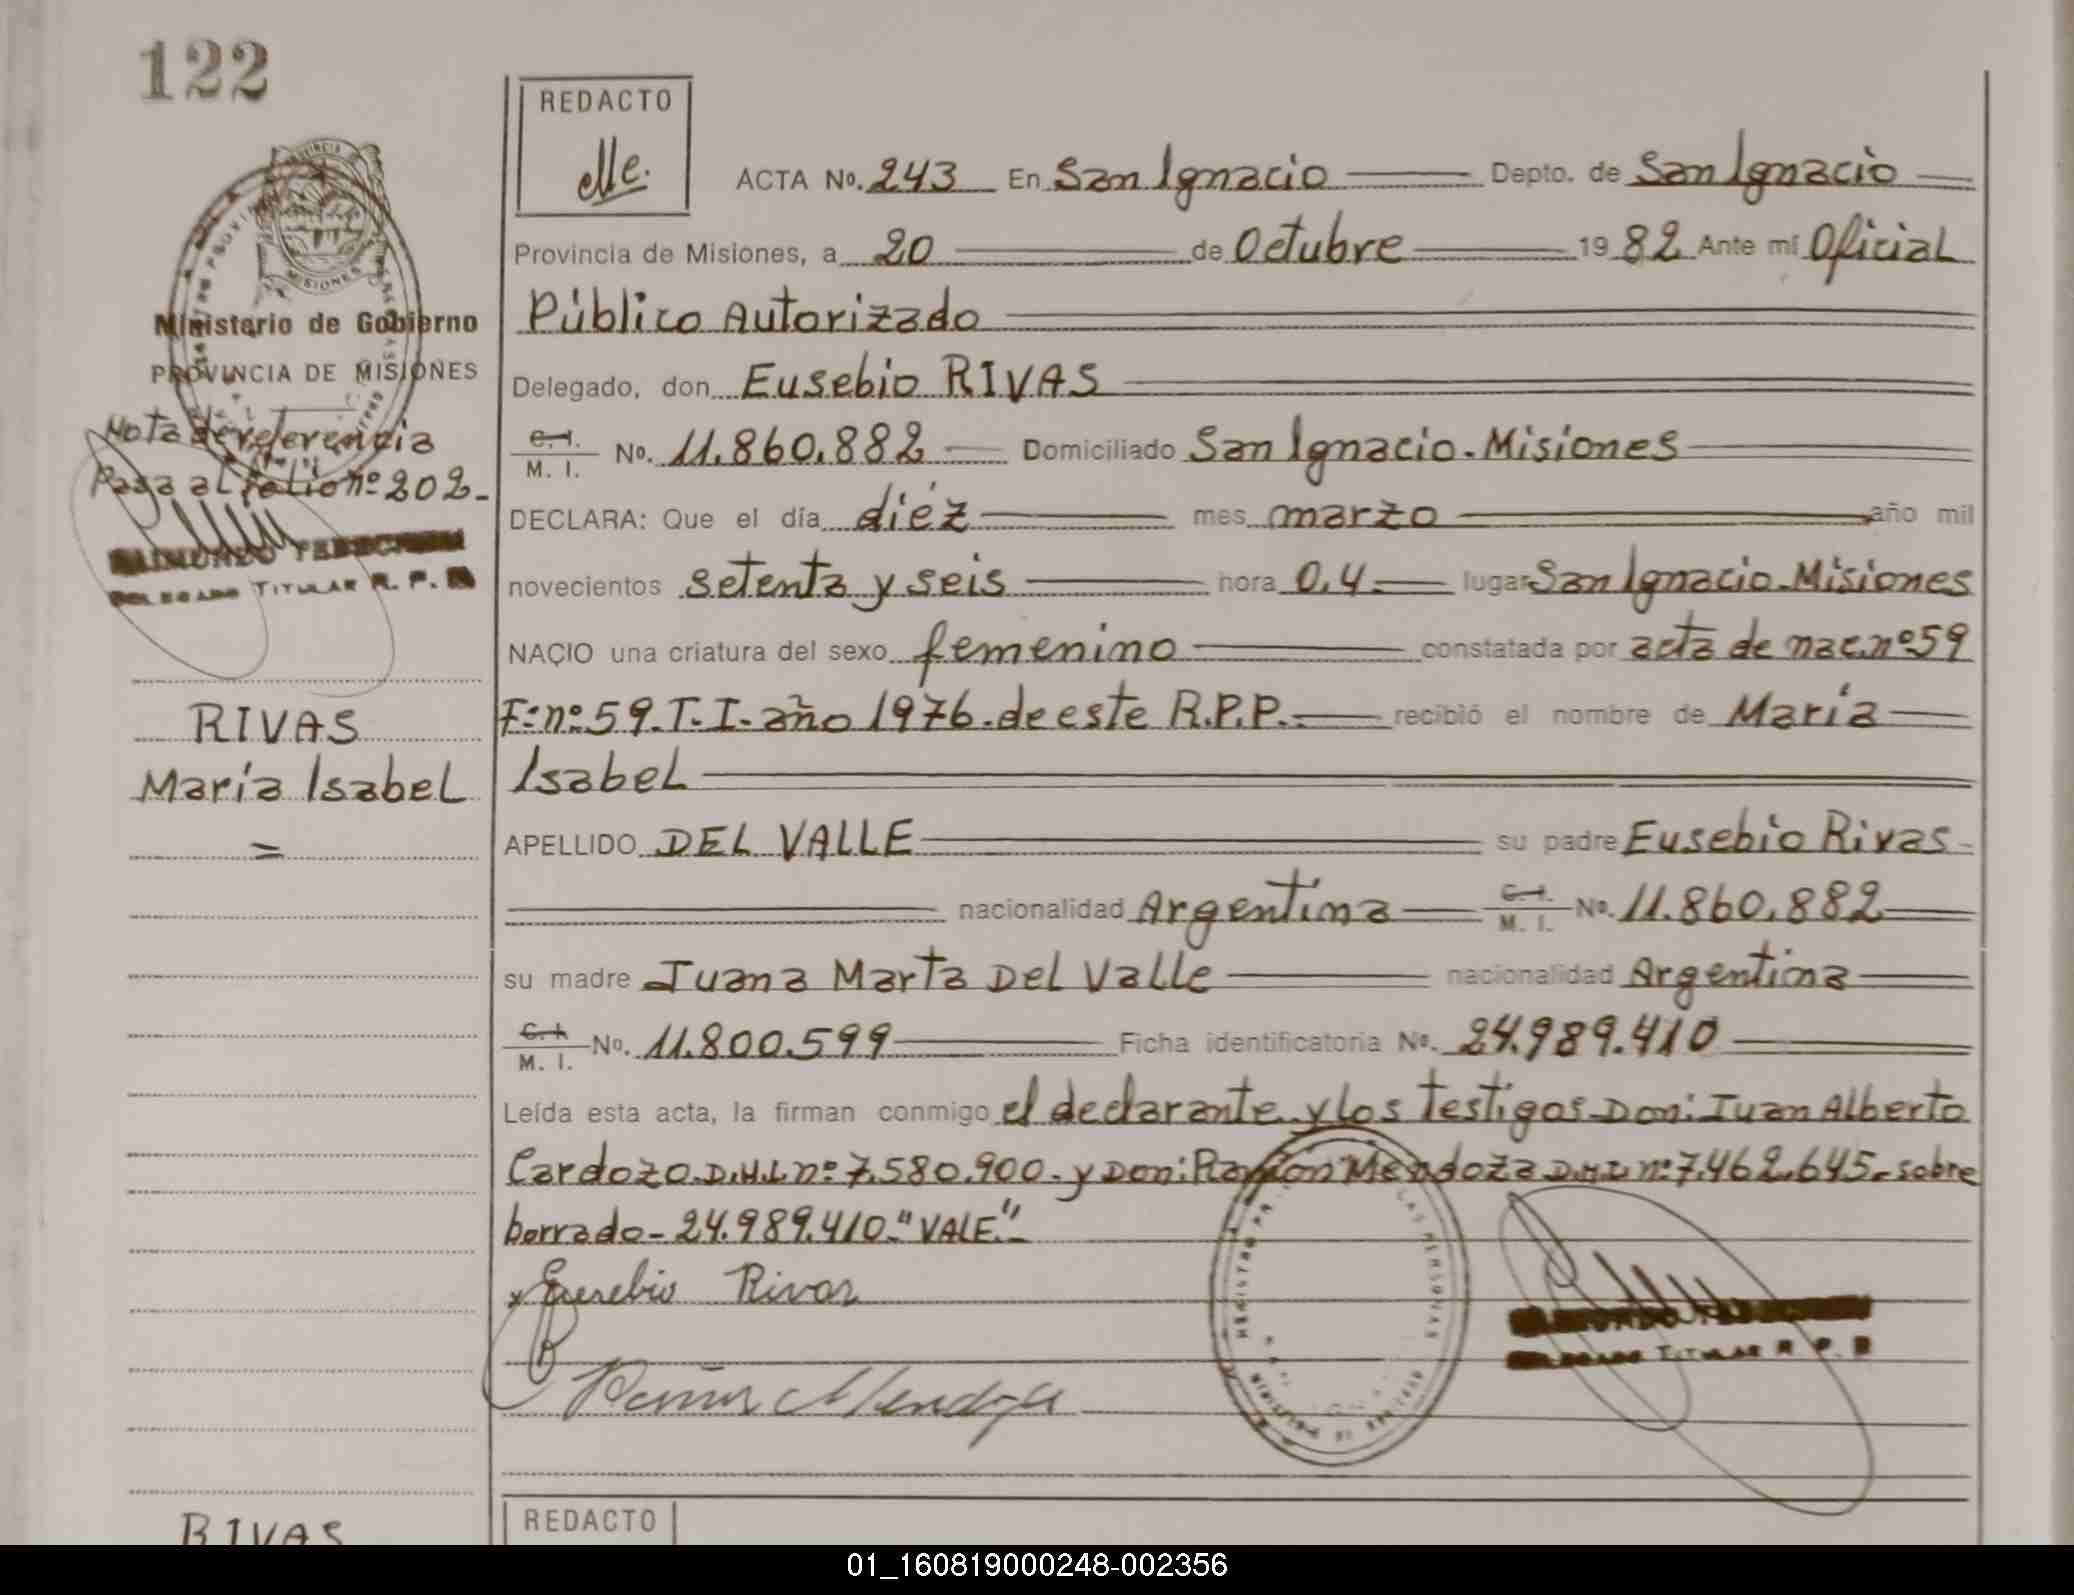 122
REDACTO
ACTA No. 243 En San Ignacio Depto. de San Ignacio
Provincia de Misiones, a 20 de Octubre 1982 Ante mí Oficial
Público Autorizado
Delegado, don Eusebio RIVAS
C. I. / M. I. No. 11.860.882 Domiciliado San Ignacio - Misiones
DECLARA: Que el día diéz mes marzo año mil
novecientos setenta y seis hora 0,4 lugar San Ignacio - Misiones
NACIO una criatura del sexo femenino constatada por acta de nac. nº 59
Fº nº 59. T. I. año 1976. de este R.P.P. recibió el nombre de María
Isabel
APELLIDO DEL VALLE su padre Eusebio Rivas
nacionalidad Argentina C. I. / M. I. No. 11.860.882
su madre Juana Marta Del Valle nacionalidad Argentina
C. I. / M. I. No. 11.800.599 Ficha identificatoria No. 24.989.410
Leída esta acta, la firman conmigo el declarante y los testigos Don: Juan Alberto
Cardozo D.M.I. nº 7.580.900. y Don: Ramón Mendoza D.M.I. nº 7.462.645. sobre
borrado - 24.989.410 "VALE"
Eusebio Rivas
Ramón Mendoza
TITULAR R. P.
MISIONES
Ministerio de Gobierno
PROVINCIA DE MISIONES
Nota de referencia
Pasa al folio nº 202
TITULAR R. P.
RIVAS
María Isabel
RIVAS
REDACTO
01_160819000248-002356